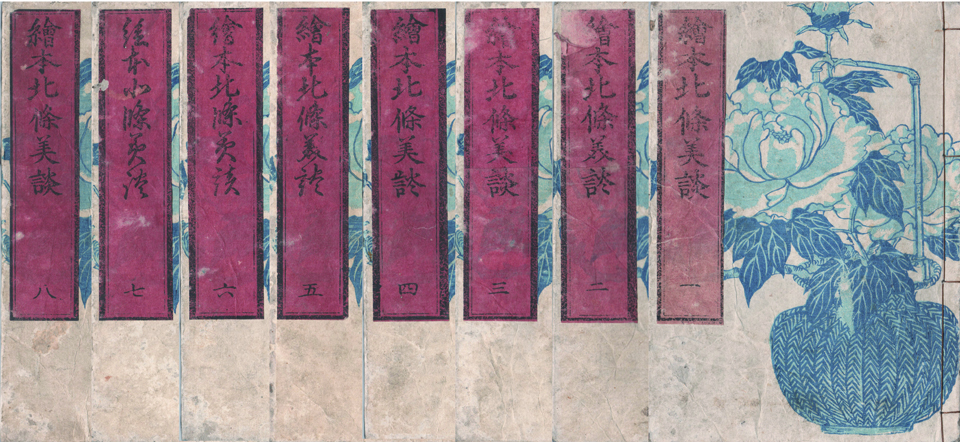 繪本北條美談 一
繪本北條美談 二
繪本北條美談 三
繪本北條美談 四
繪本北條美談 五
繪本北條美談 六
繪本北條美談 七
繪本北條美談 八